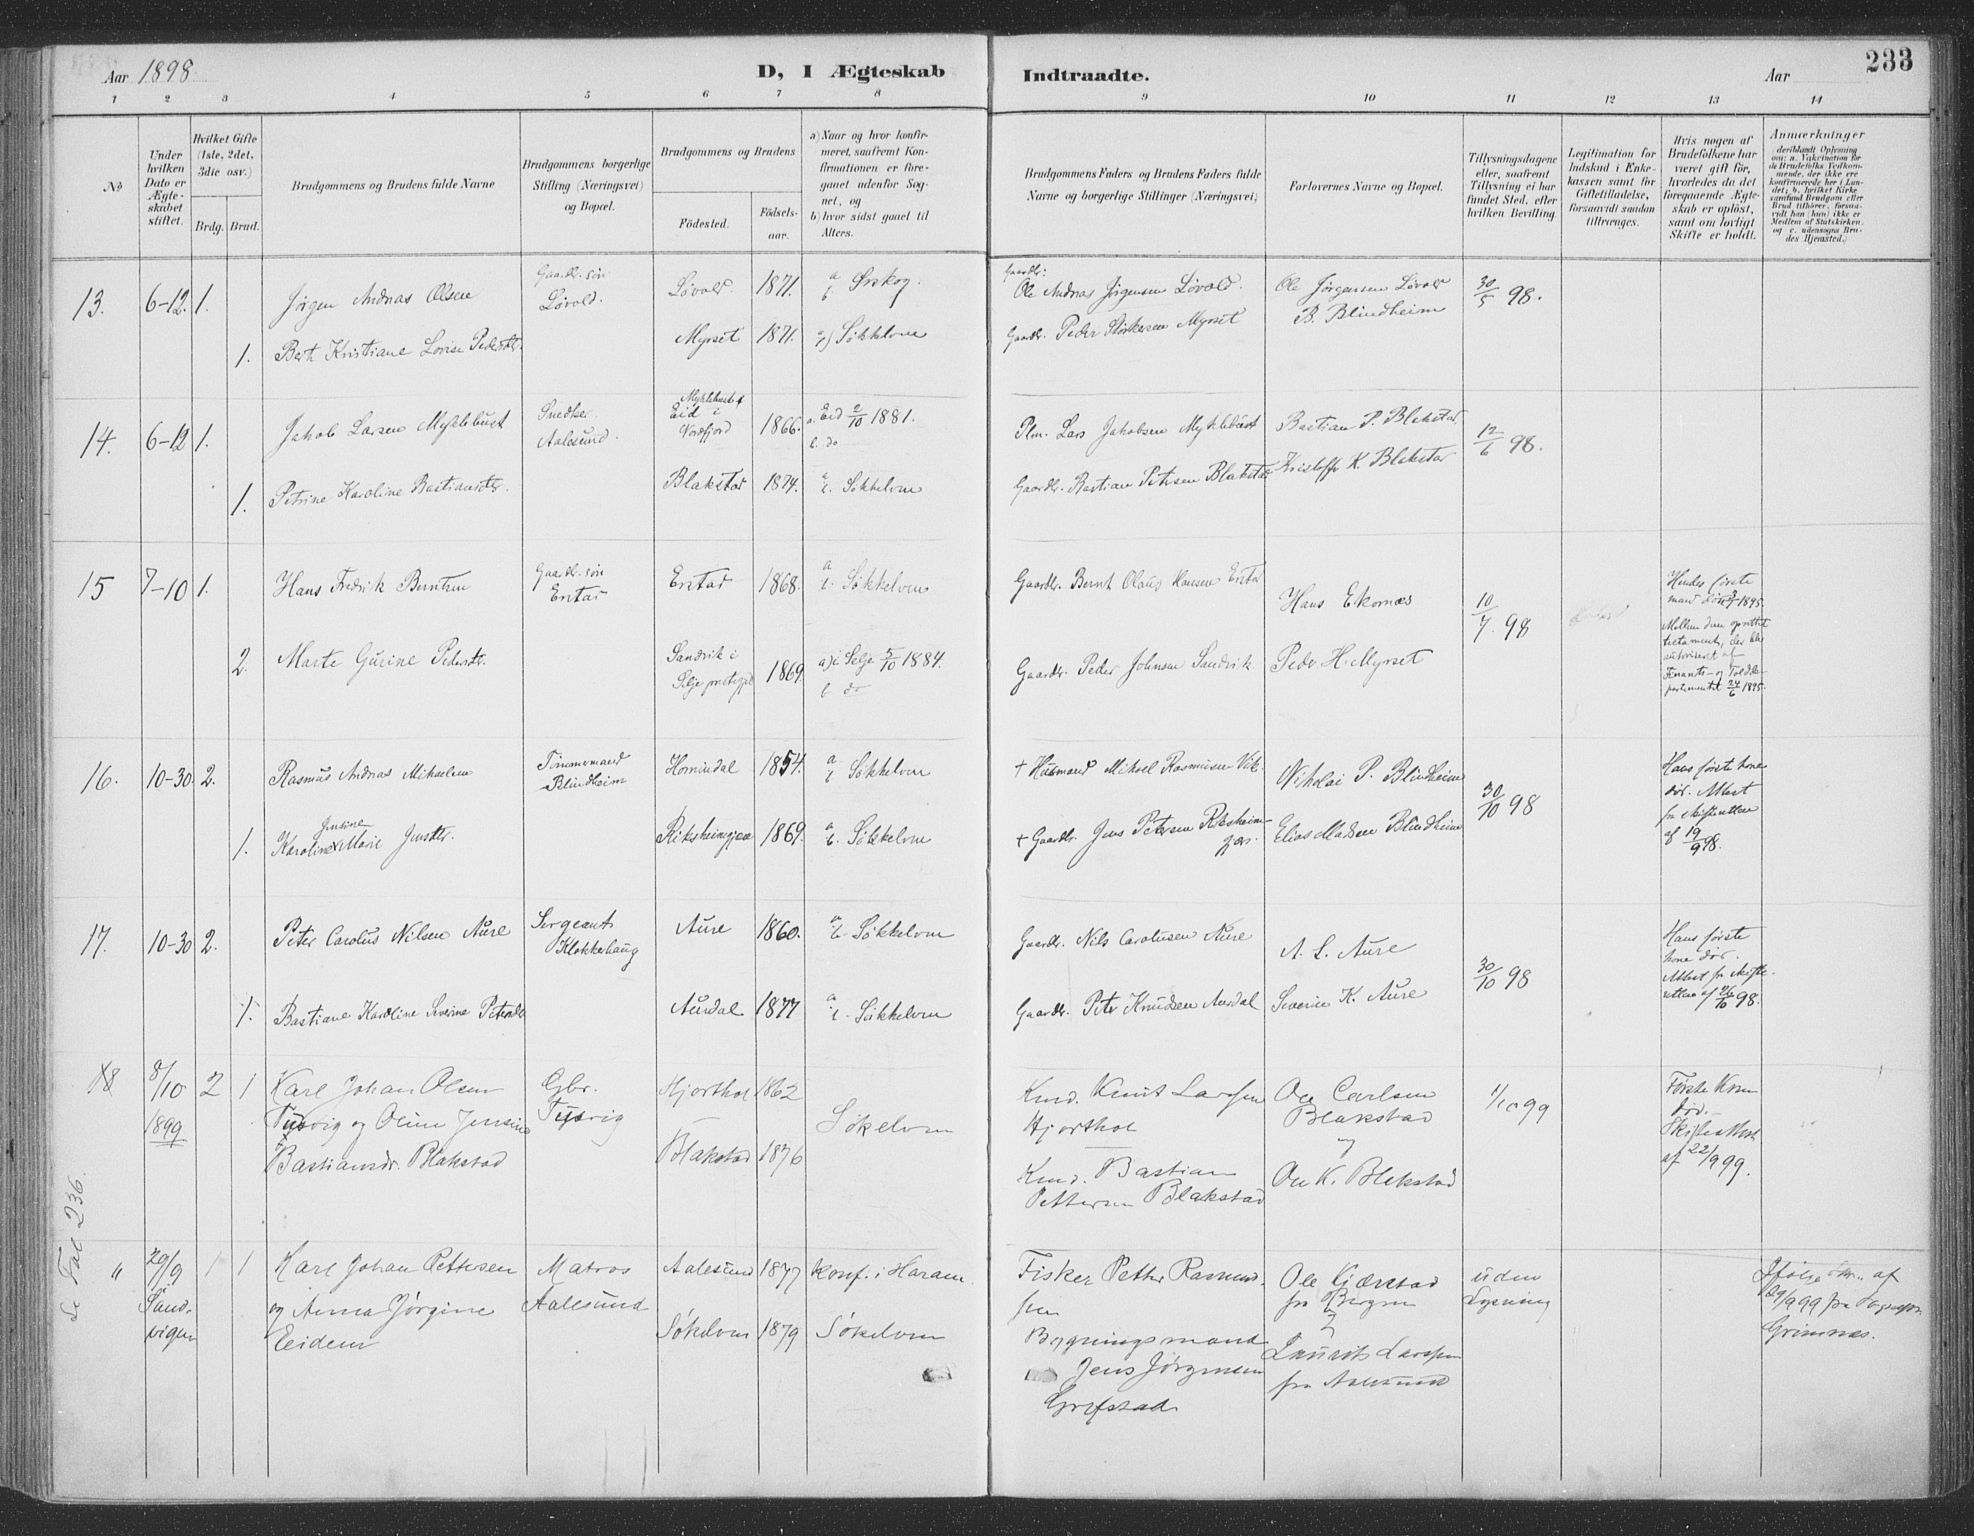 Aar 1898
D, I Ægteskab
Indtraadte.
Aar
233
1 2 3 4 5 6 7 8 9 10 11 12 13 14
No
Under hvilken Dato er Ægteskabet stiftet.
Hvilket Gifte (1ste, 2det, 3die osv.)
Brdg. Brud.
Brudgommens og Brudens fulde Navne
Brudgommens borgerlige Stilling (Næringsvei) og Bopæl.
Brudgommens og Brudens
Fødested.
Fødselsaar.
a) Naar og hvor konfirmeret, saafremt Konfirmationen er foregaaet udenfor Sognet, og
b) hvor sidst gaaet til Alters.
Brudgommens Faders og Brudens Faders fulde Navne og borgerlige Stillinger (Næringsvei)
Forlovernes Navne og Bopæl.
Tillysningsdagene eller, saafremt Tillysning ei har fundet Sted, efter hvilken Bevilling.
Legitimation for Indskud i Enkekassen samt for Giftetilladelse, forsaavidt saadan tiltrænges.
Hvis nogen af Brudefolkene har været gift før, hvorledes da det foregaaende Ægteskab er opløst, samt om lovligt Skifte er holdt.
Anmærkninger
13. 6-12. 1. Jørgen Andnas Olsen Gaardbr. søn Løvold. Løvold. 1871. a b Ørskog.
Gaardbr: Ole Andnas Jørgensen Løvold. Ole Jørgensen Løvold B. Blindheim 30/5 98.
1. Bert Kristiane Lovise Pedersdtr. Myrset 1871. Søkkelven
Gaardbr. Peder Størkersen Myrset
14. 6-12 1. Jakob Larsen Myklebust Snedker Aalesund. Myklebust Eid i Nordfjord 1866. a. Eid 2/10 1881. b. do
Plm. Lars Jakobsen Myklebust Bastian P. Blakstad 12/6 98.
1. Petrine Karoline Bastiansdtr. Blakstad 1874. a b. Søkkelven
Gaardbr. Bastian Petersen Blakstad Kristoffer K. Blakstad
15 7-10 1. Hans Fredrik Berntsen Gaardbr. søn Erstad Erstad 1868. a b. Søkkelven
Gaardbr. Bernt Olaus Hansen Erstad Hans Ekornæs 10/7. 98
Hendes første mand død 3/7 1895. Mellem dem oprettet testament, der blev autoriseret af Finants- og Tolddepartementet 24/6 1895.
2. Marte Gurine Pedersdtr. Sandvik i Selje prestegjeld 1869. a) i Selje 5/10 1884. b do
Gaardbr. Peder Johnsen Sandvik Peder H. Myrset
16. 10-30. 2. Rasmus Andnas Mikaelsen Tømmermand Blindheim Hornindal 1854. a b Søkkelven
+ Husmand Mikael Rasmussen Vik. Nikolai P. Blindheim 30/10 98
Hans første kone død. Attest fra skifteretten af 19/9 98.
1. Karoline Jensine Marie Jensdtr. Riksheimgjære 1869. a b. Søkkelven
+ Gaardbr. Jens Petersen Riksheimgjær. Elias Madsen Blindheim
17. 10-30 2. Peter Carolus Nilsen Aure Sergeant Klokkerhaug Aure 1860. a b. Søkkelven
Gaardbr. Nils Carolusen Aure A. L. Aure 30/10 98
Hans første kone død. Attest fra skifteretten af 26/10 98.
1. Bastiane Karoline Severine Petersdtr Aurdal 1877 a b. Søkkelven
Gaardbr. Peter Knudsen Aurdal Severin K. Aure
18 8/10 1899 2 1 Karl Johan Olsen Tusvig og Oline Jensine Bastiansdr. Blakstad
Gbr. Tusvig Hjorthol 1862 Blakstad 1876 Søkelven
Kmd. Knut Larssen Hjorthol Ole Carlsen Blakstad og 1/10 99
Kmd. Bastian Pettersen Blakstad Ole K. Blakstad
Første Kone død. - Skifteattest af 22/9 99.
Se Fol 236.
" 29/9 Sandvigen 1 1 Karl Johan Pettersen og Anna Jørgine Eidem
Matros Aalesund Aalesund 1877 Konf. i Haram
Søkelven 1879 Søkelven
Fisker Petter Rasmussen
Bygningsmand Jens Jørgensen Grefstad
Ole Gjærstad fra Bergen og Laurits Larssen fra Aalesund
uden Lysning
Ifølge af 29/9 99 fra Grimnæs.